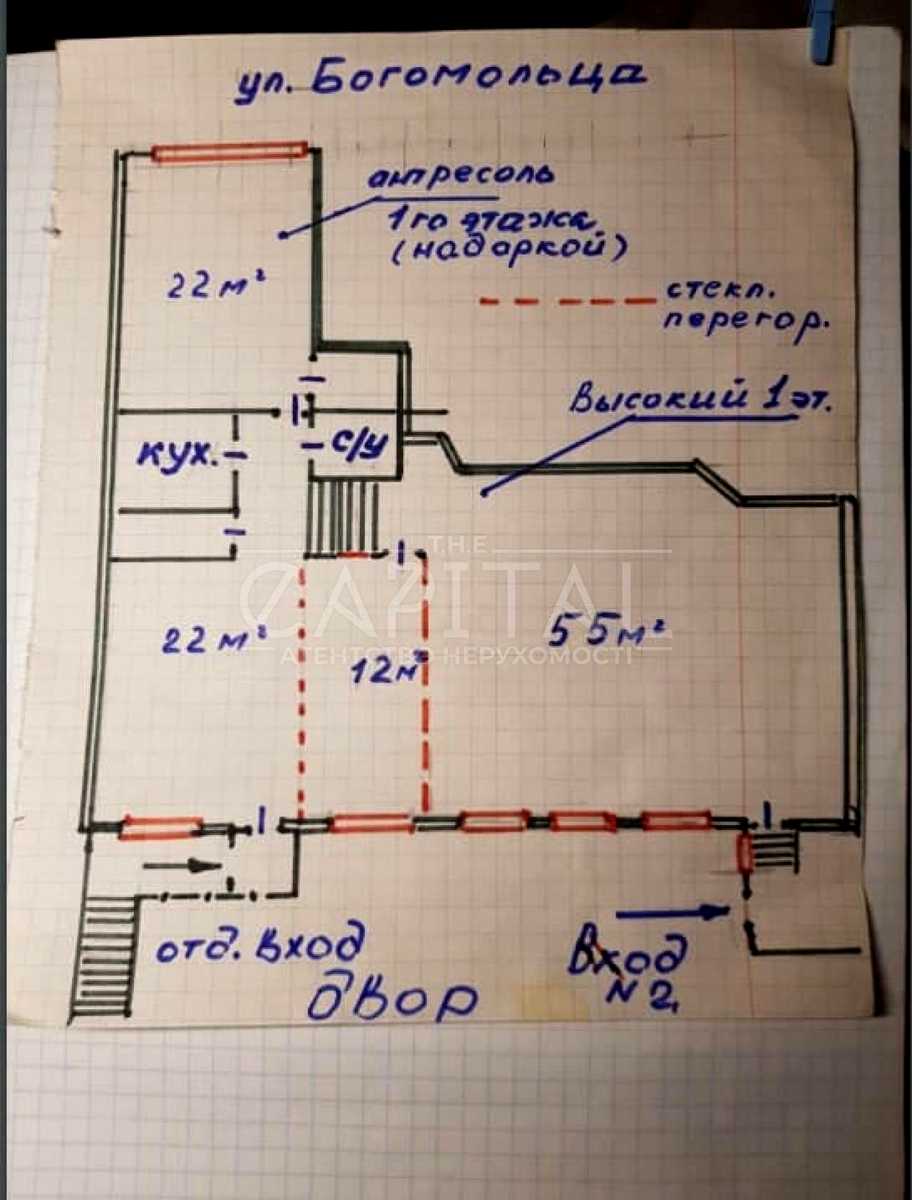 ул. Богомольца
антресоль
1го этажа
(надаркой)
22 м²
стекл.
перегор.
Высокий 1 эт.
кух.
с/у
THE
CAPITAL
АГЕНТСТВО НЕРУХОМОСТІ
22 м²
12м²
55м²
отд. Вход
Вход
N 2
двор